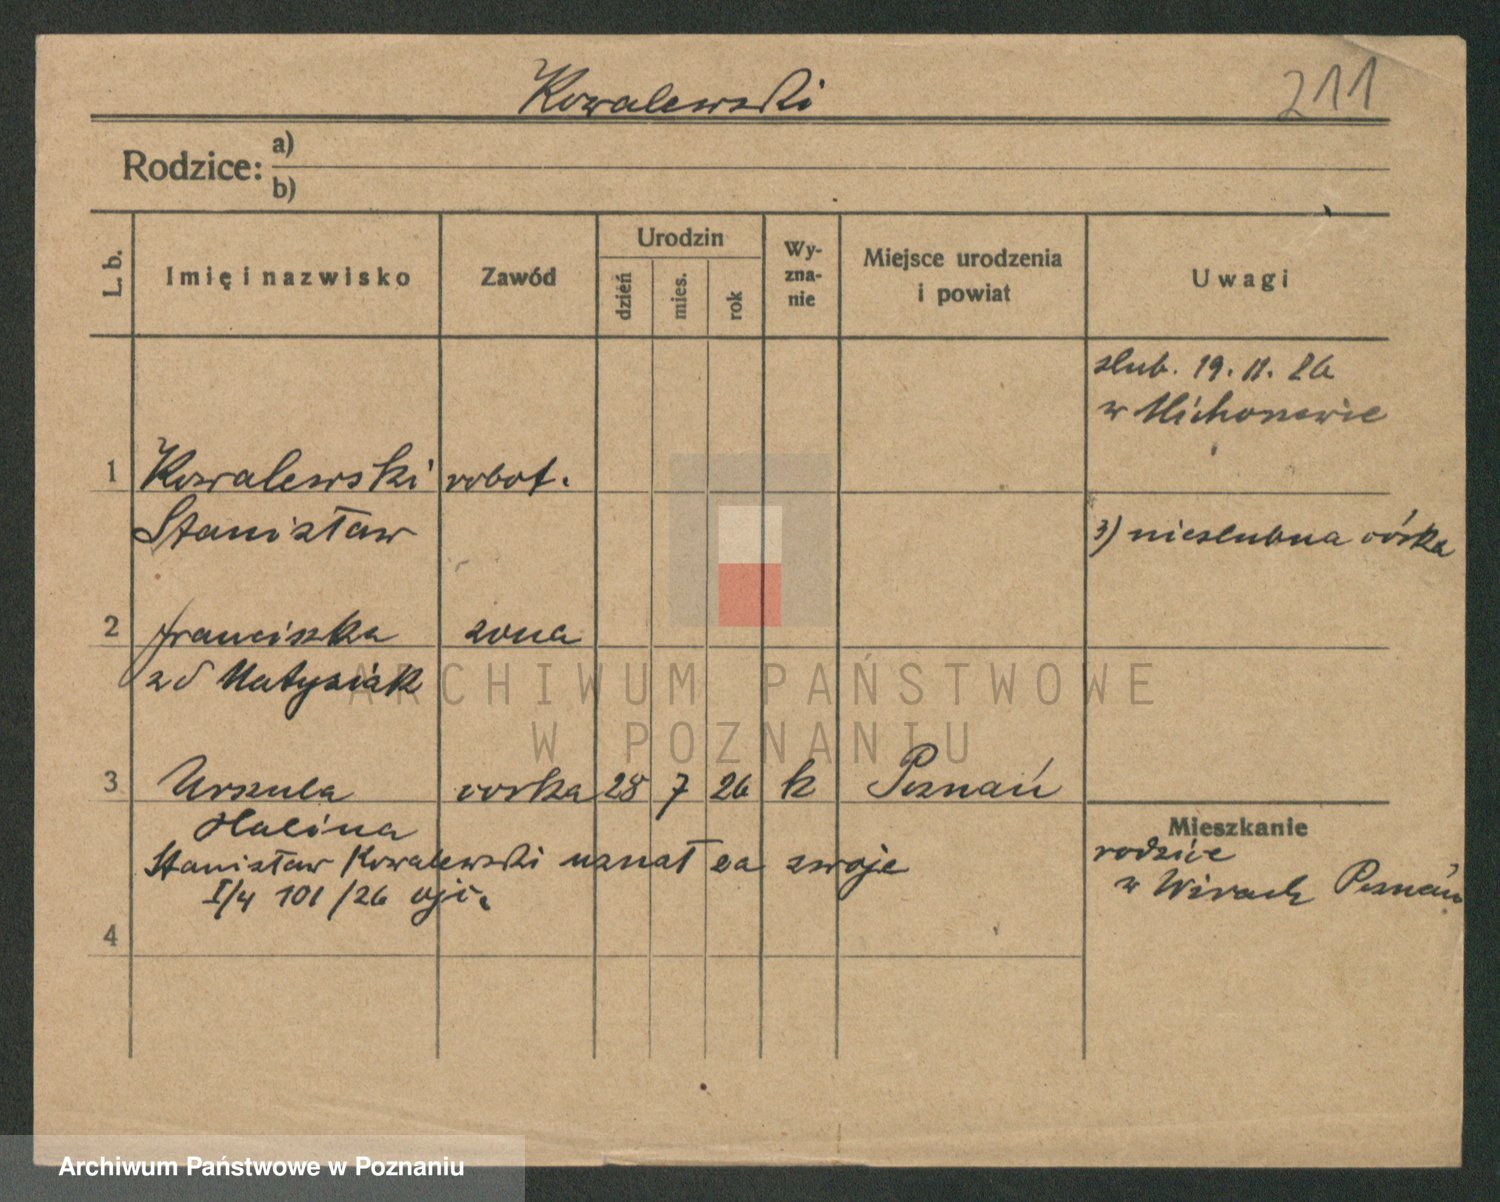 Kowalewski
211
Rodzice:
a)
b)
L. b.
Imię i nazwisko
Zawód
Urodzin
dzień
mies.
rok
Wy-
zna-
nie
Miejsce urodzenia
i powiat
Uwagi
slub. 19. 11. 26
w
1 Kowalewski robot.
Stanisław
3) nieslubna córka
2 Franciszka zona
zd Matysiak
3 Urszula corka 28 7 26 k Poznań
Halina
Stanisław Kowalewski uznał za swoje
I/4 101/26
Mieszkanie
rodzice
w Wirach Poznań
4
ARCHIWUM PAŃSTWOWE
W POZNANIU
Archiwum Państwowe w Poznaniu